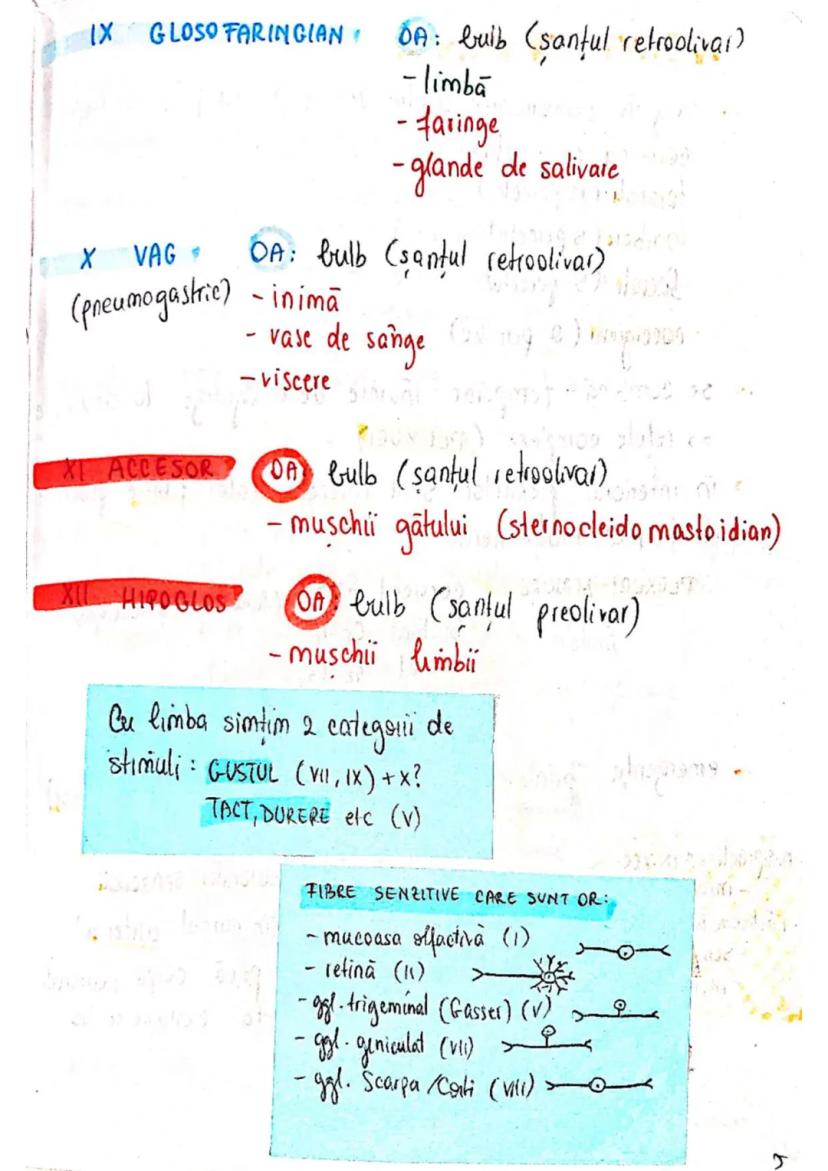 IX GLOSOFARINGIAN OA: bulb (șanțul retroolivar)
- limbă
- faringe
- glande de salivare
X VAG OA: bulb (șanțul retroolivar)
(pneumogastric) - inimă
- vase de sânge
- viscere
XI ACCESOR OA: bulb (șanțul retroolivar)
- mușchii gâtului (sternocleidomastoidian)
XII HIPOGLOS OA: bulb (șanțul preolivar)
- mușchii limbii
Cu limba simțim 2 categorii de
stimuli: GUSTUL (VII, IX) + X?
TACT, DURERE etc (V)
FIBRE SENZITIVE CARE SUNT OR:
- mucoasa olfactivă (I)
- retină (II)
- ggl. trigeminal (Gasser) (V)
- ggl. geniculat (VII)
- ggl. Scarpa/Corti (VIII)